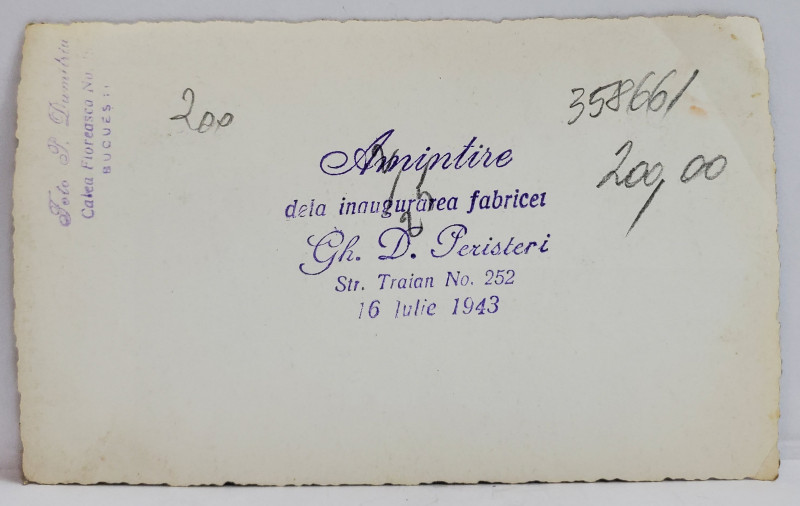 Foto P. Dumitriu
Calea Floreasca No.
BUCUEȘTI
200
358661
200,00
Amintire
dela inaugurarea fabricei
Gh. D. Peristeri
Str. Traian No. 252
16 Iulie 1943